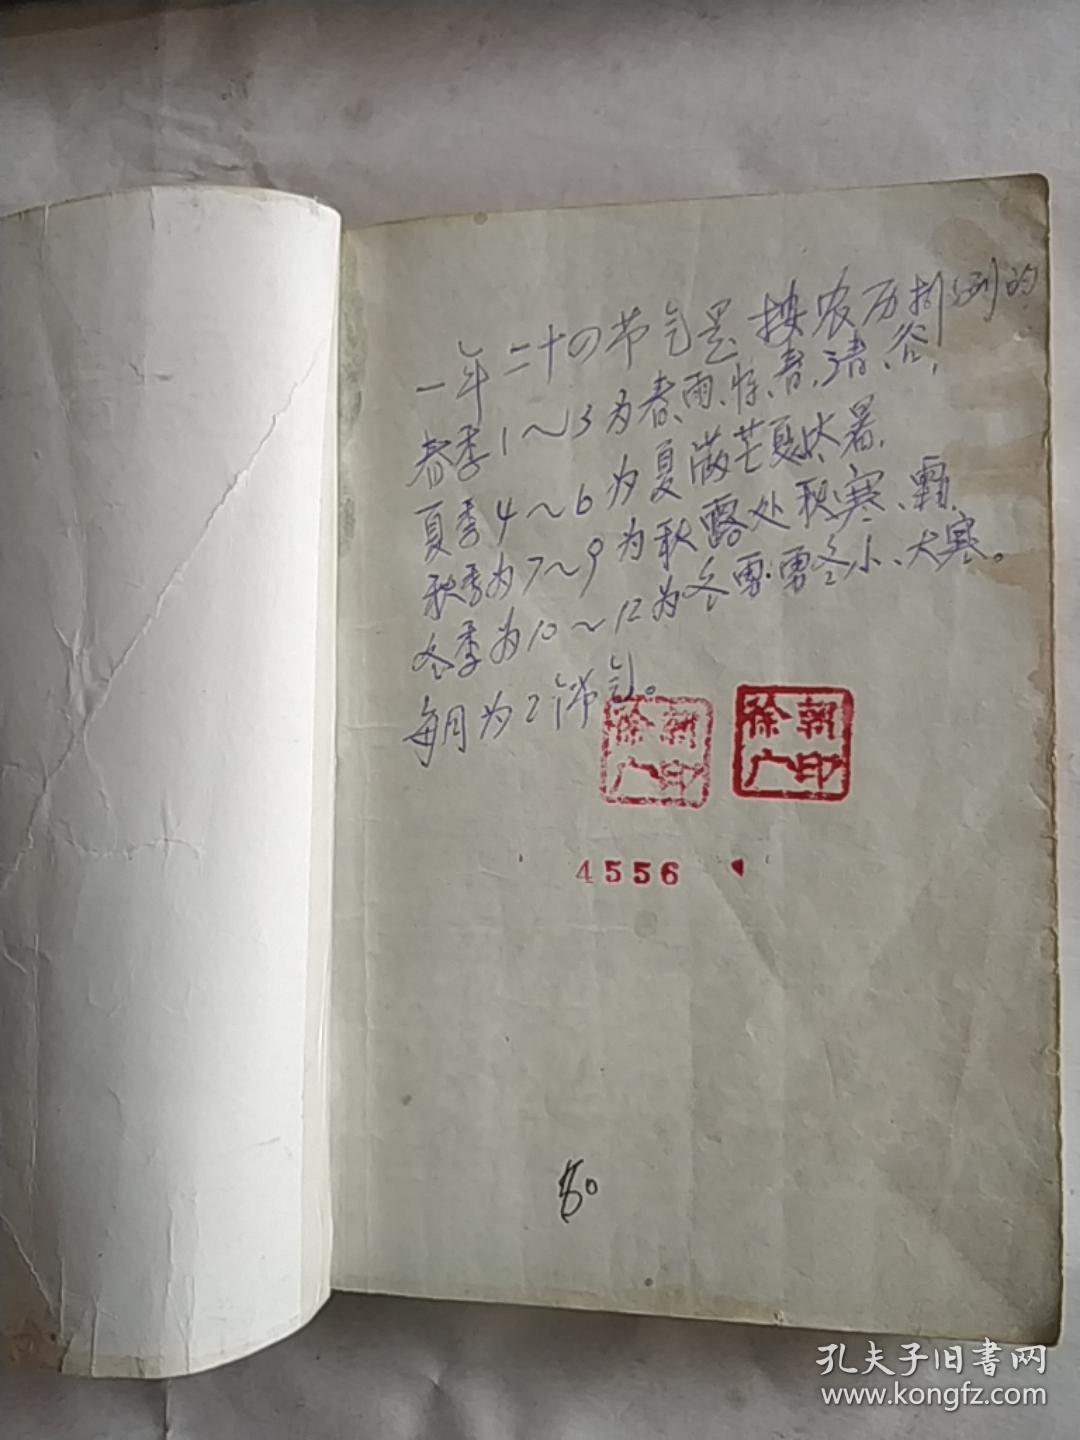 一年二十四节气是按农历排列的
春季1～3为春、雨、惊、春、清、谷,
夏季4～6为夏满芒夏大暑,
秋季为7～9为秋露处秋寒、霜,
冬季为10～12为冬雪·雪冬小、大寒。
每月为2个节气。
徐朝
广印
徐朝
广印
4556
50
孔夫子旧书网
www.kongfz.com